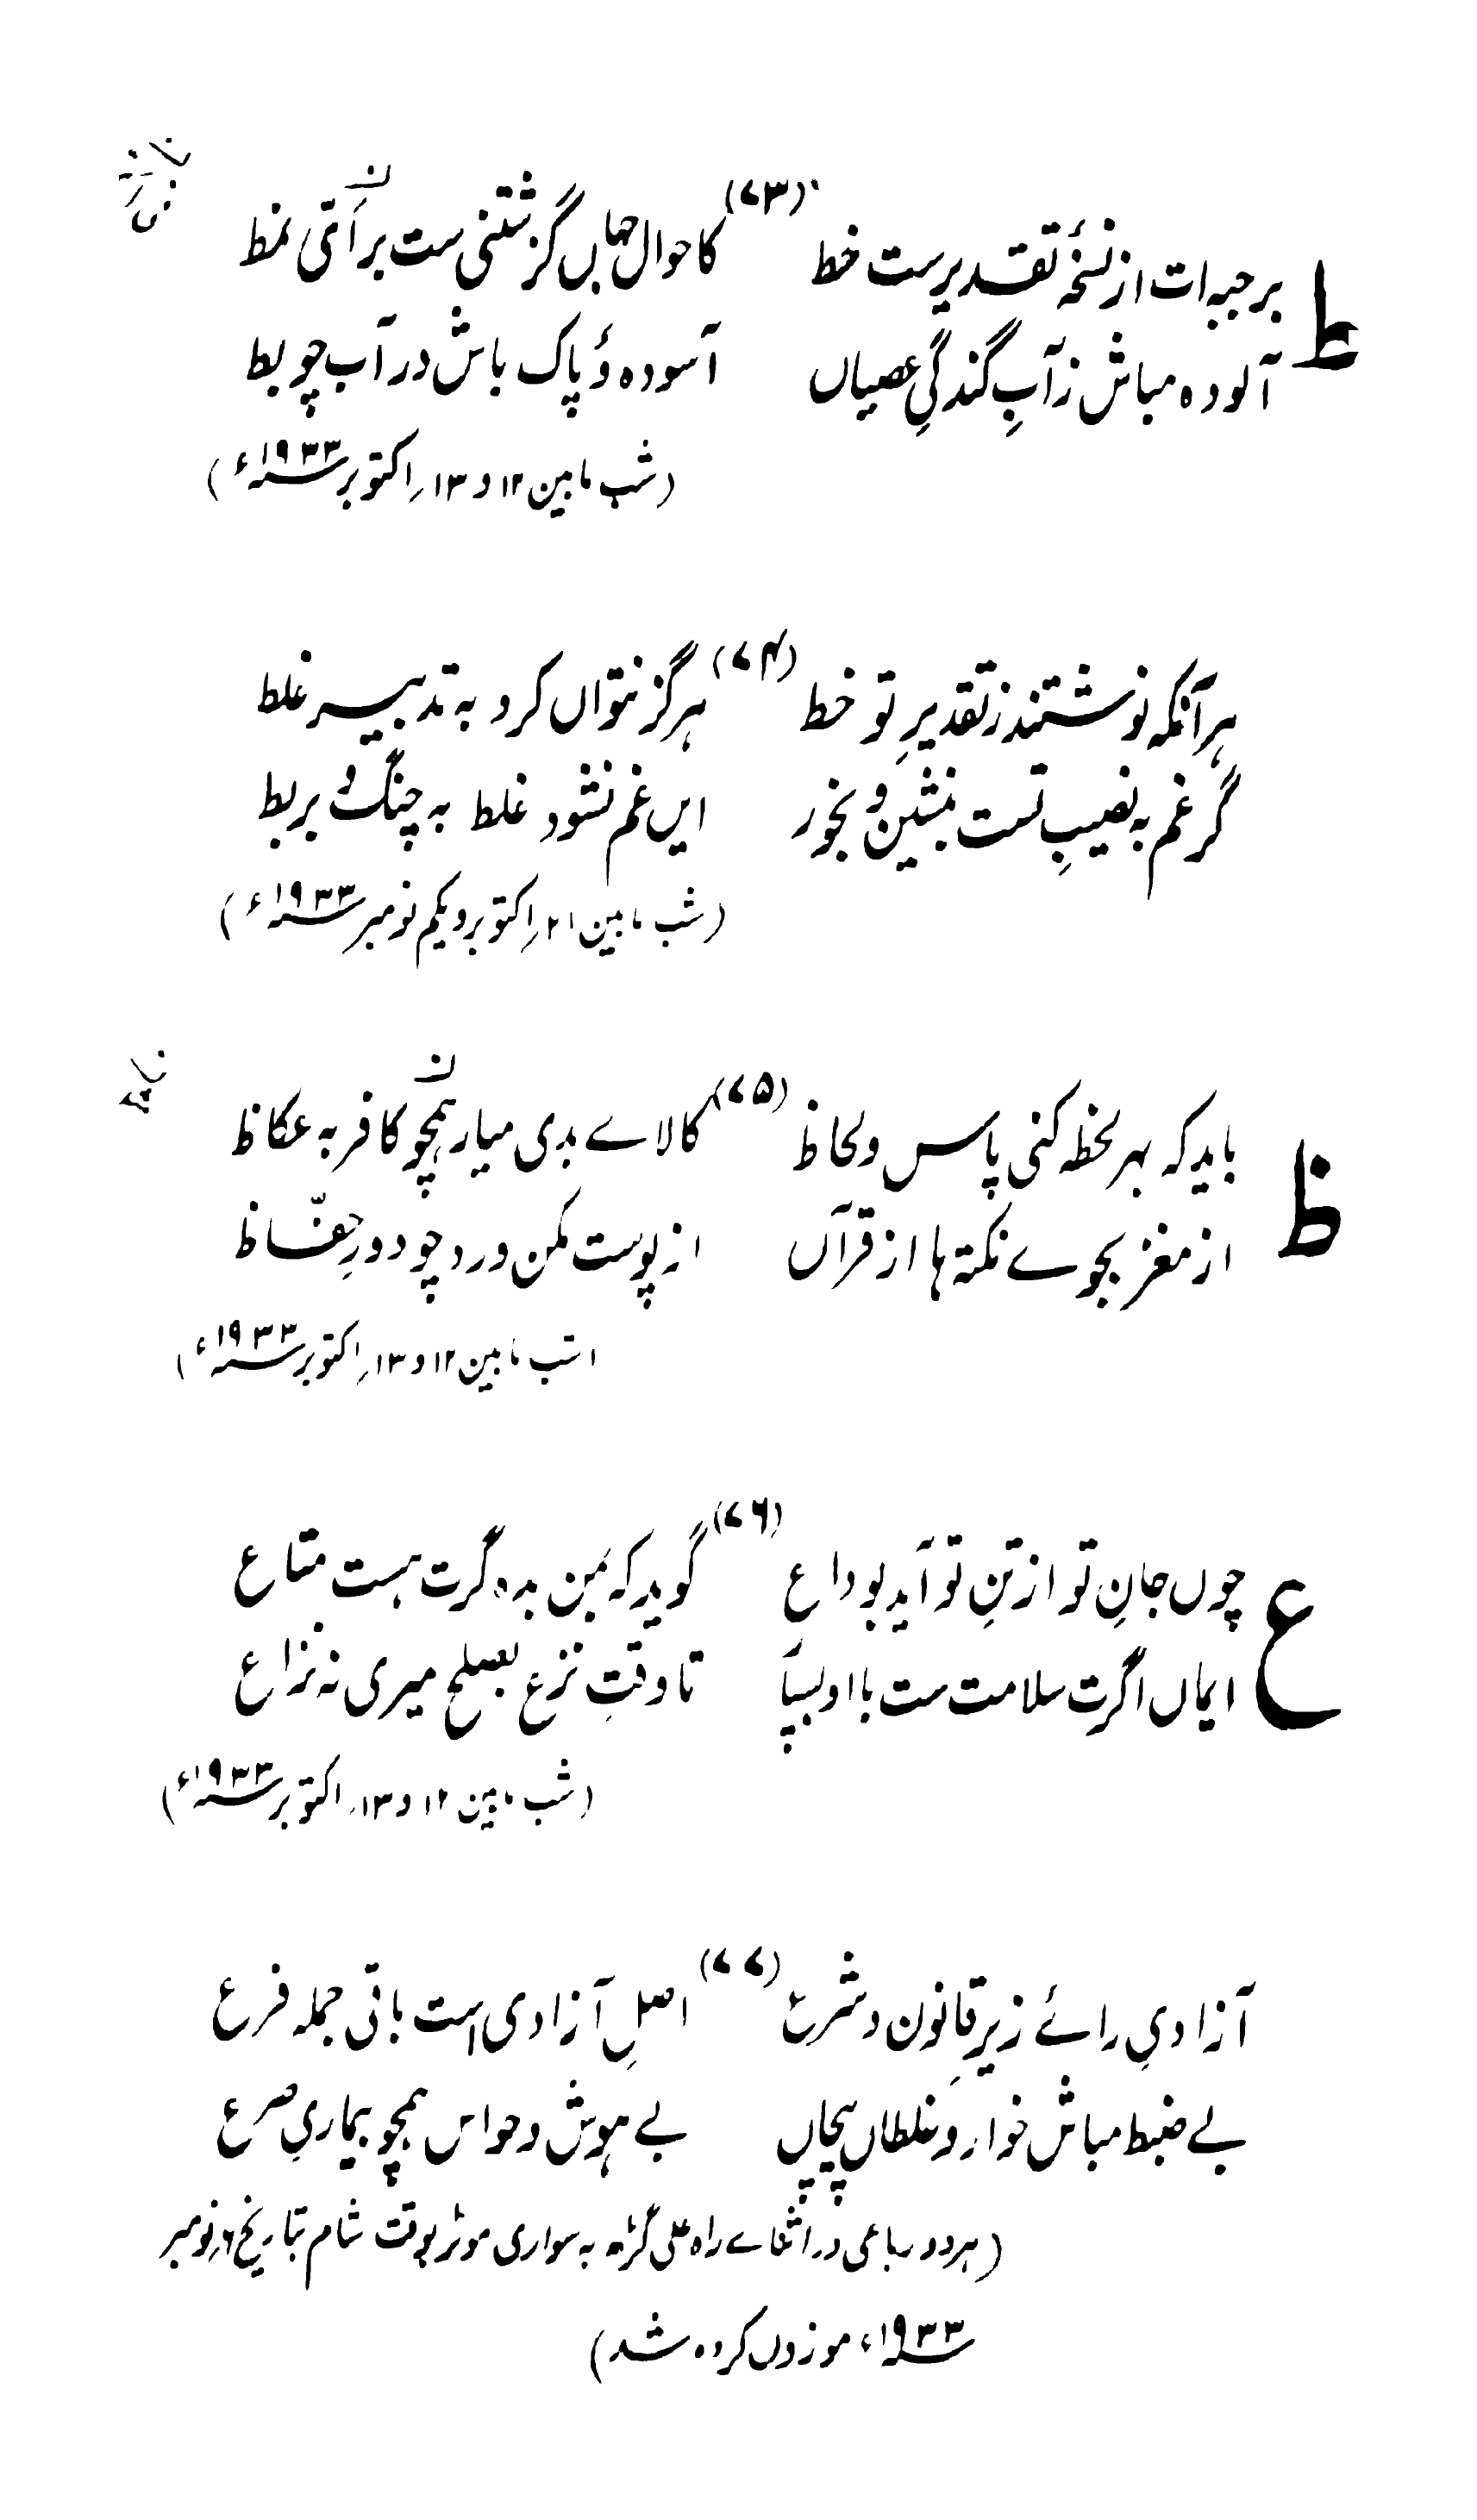 (۷۳)
ط
بر جبہات از نسخۂ تقدیرست خط کاحوالِ جہاں گزشتنی ست بر آتی نمط
آلودہ مباش ز آبِ گندگیِ عصیاں آسودہ و پاک باش در آب چو بط
(شب مابین ۱۲ و ۱۳؍ اکتوبر ۱۹۳۳ء)
(۷۴)
ہر آنکہ نوشتند ز تقدیرِ تو خط ہرگز نتواں کرد بہ تدبیر غلط
گر غم بہ نصیبِ تست بنشیں و بخور ایں غم نشود غلط بہ چنگ و بربط
(شب مابین ۳۱ اکتوبر و یکم نومبر ۱۹۳۳ء)
(۷۵)
ظ
باید کہ بہر لحظہ کنی پاس و لحاظ کالاے بدی میار ہمچو کافر بہ عکاظ
از مغز بجوے نکتہ ہا از قرآں از پوست مکن درد چو دورِ حفّاظ
(شب مابین ۱۲ و ۱۳؍ اکتوبر ۱۹۳۳ء)
(۷۶)
ع
چوں جانِ تو از تنِ تو آید بوداع گوید کہ بمن بدہ گرت ہست متاع
ایماں اگرت سلامت ست با او بسپار تا وقتِ نزع بصلح میری نہ نزاع
(شب مابین ۱۲ و ۱۳؍ اکتوبر ۱۹۳۳ء)
(۷۷)
آزادیِ رائے زیرِ قانون و شرع اصلِ آزادی است باقی جملہ فرع
بے ضبط مباش خوار و غلطاں پیچاں بے ہوش و حواس ہمچو بیماریِ صرع
(ہر دو رباعی در اثناے راہ علی گڑھ بہ سواری موٹر بوقت شام بتاریخ نومبر
۱۹۳۳ء موزوں کردہ شد)